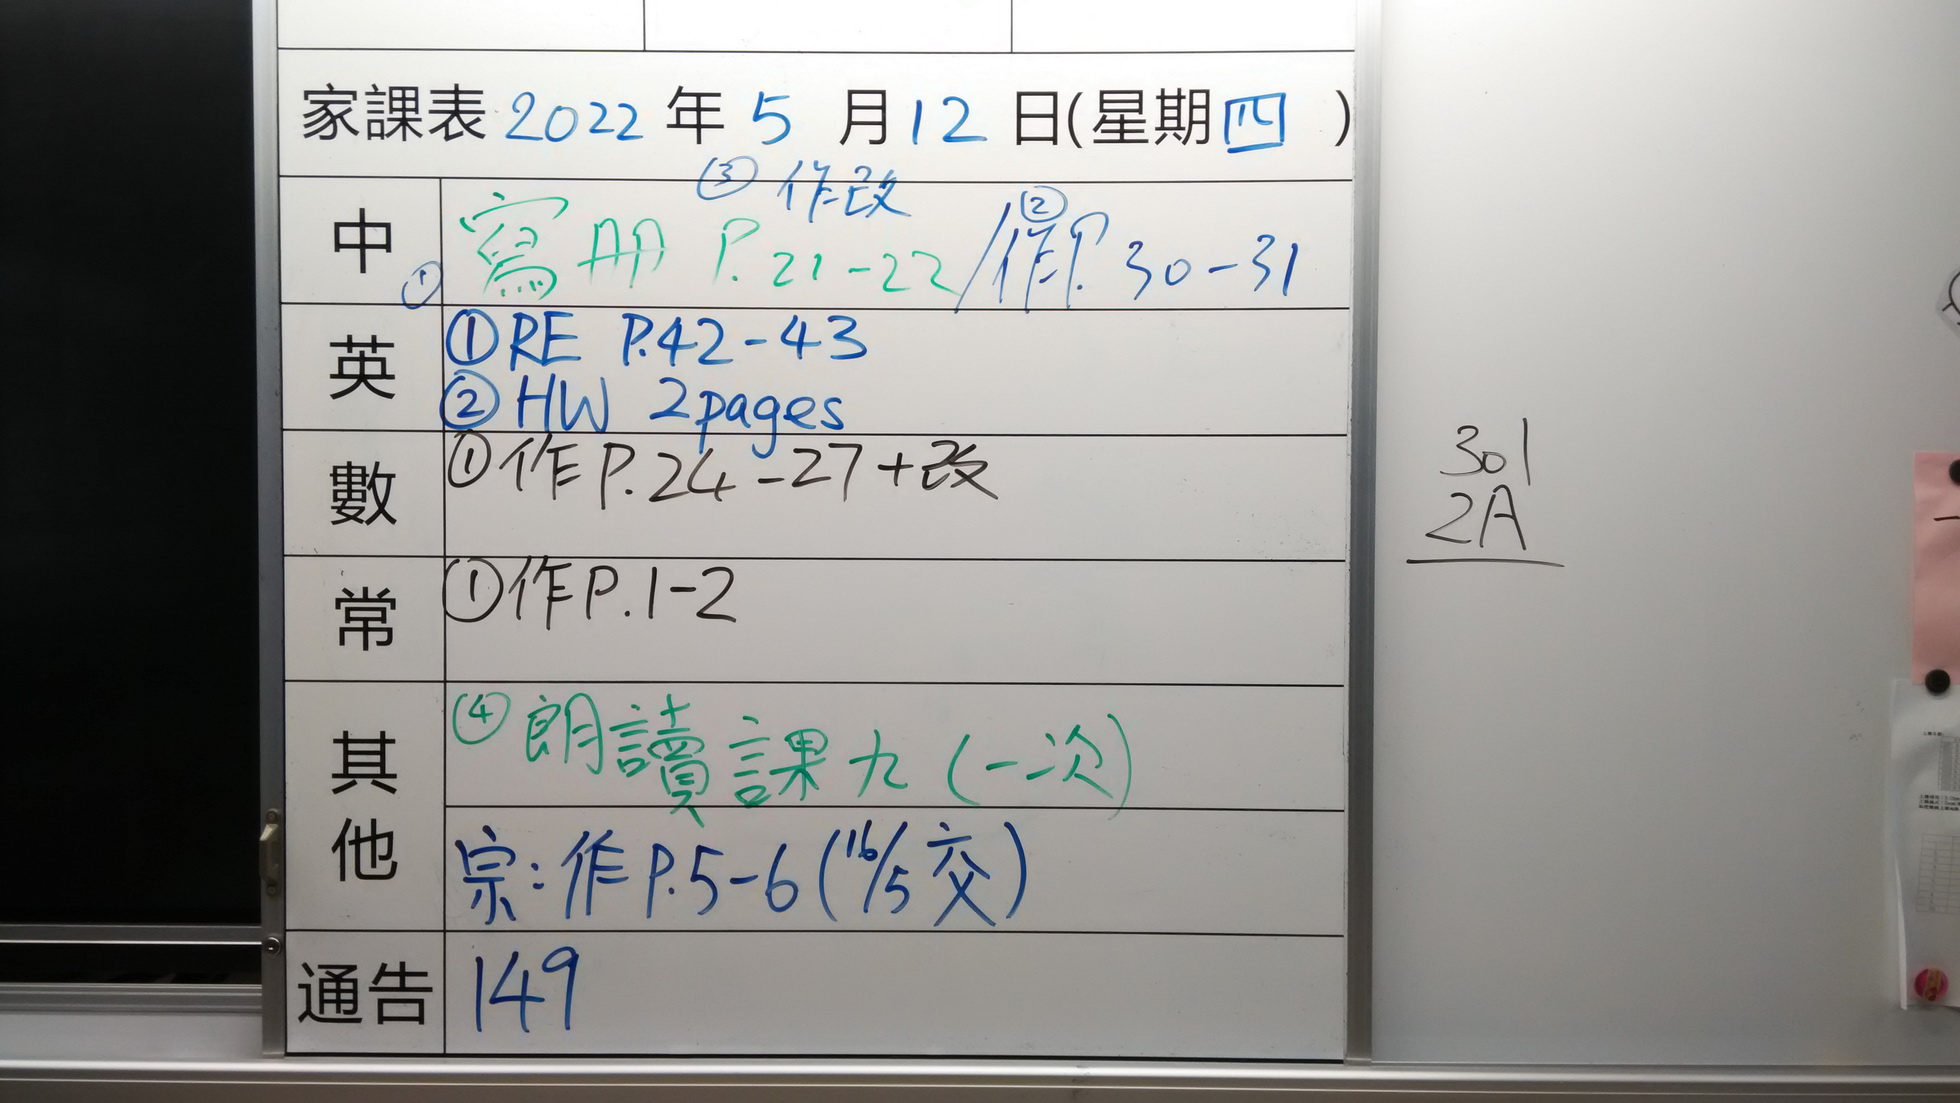 家課表 2022 年 5 月 12 日(星期四)
③ 作改
中 ① 寫冊 P.21-22/② 作P.30-31
英 ① RE P.42-43
② HW 2pages
數 ① 作P.24-27+改
常 ① 作P.1-2
其他 ④ 朗讀課九(一次)
宗:作P.5-6(16/5交)
通告 149
301
2A